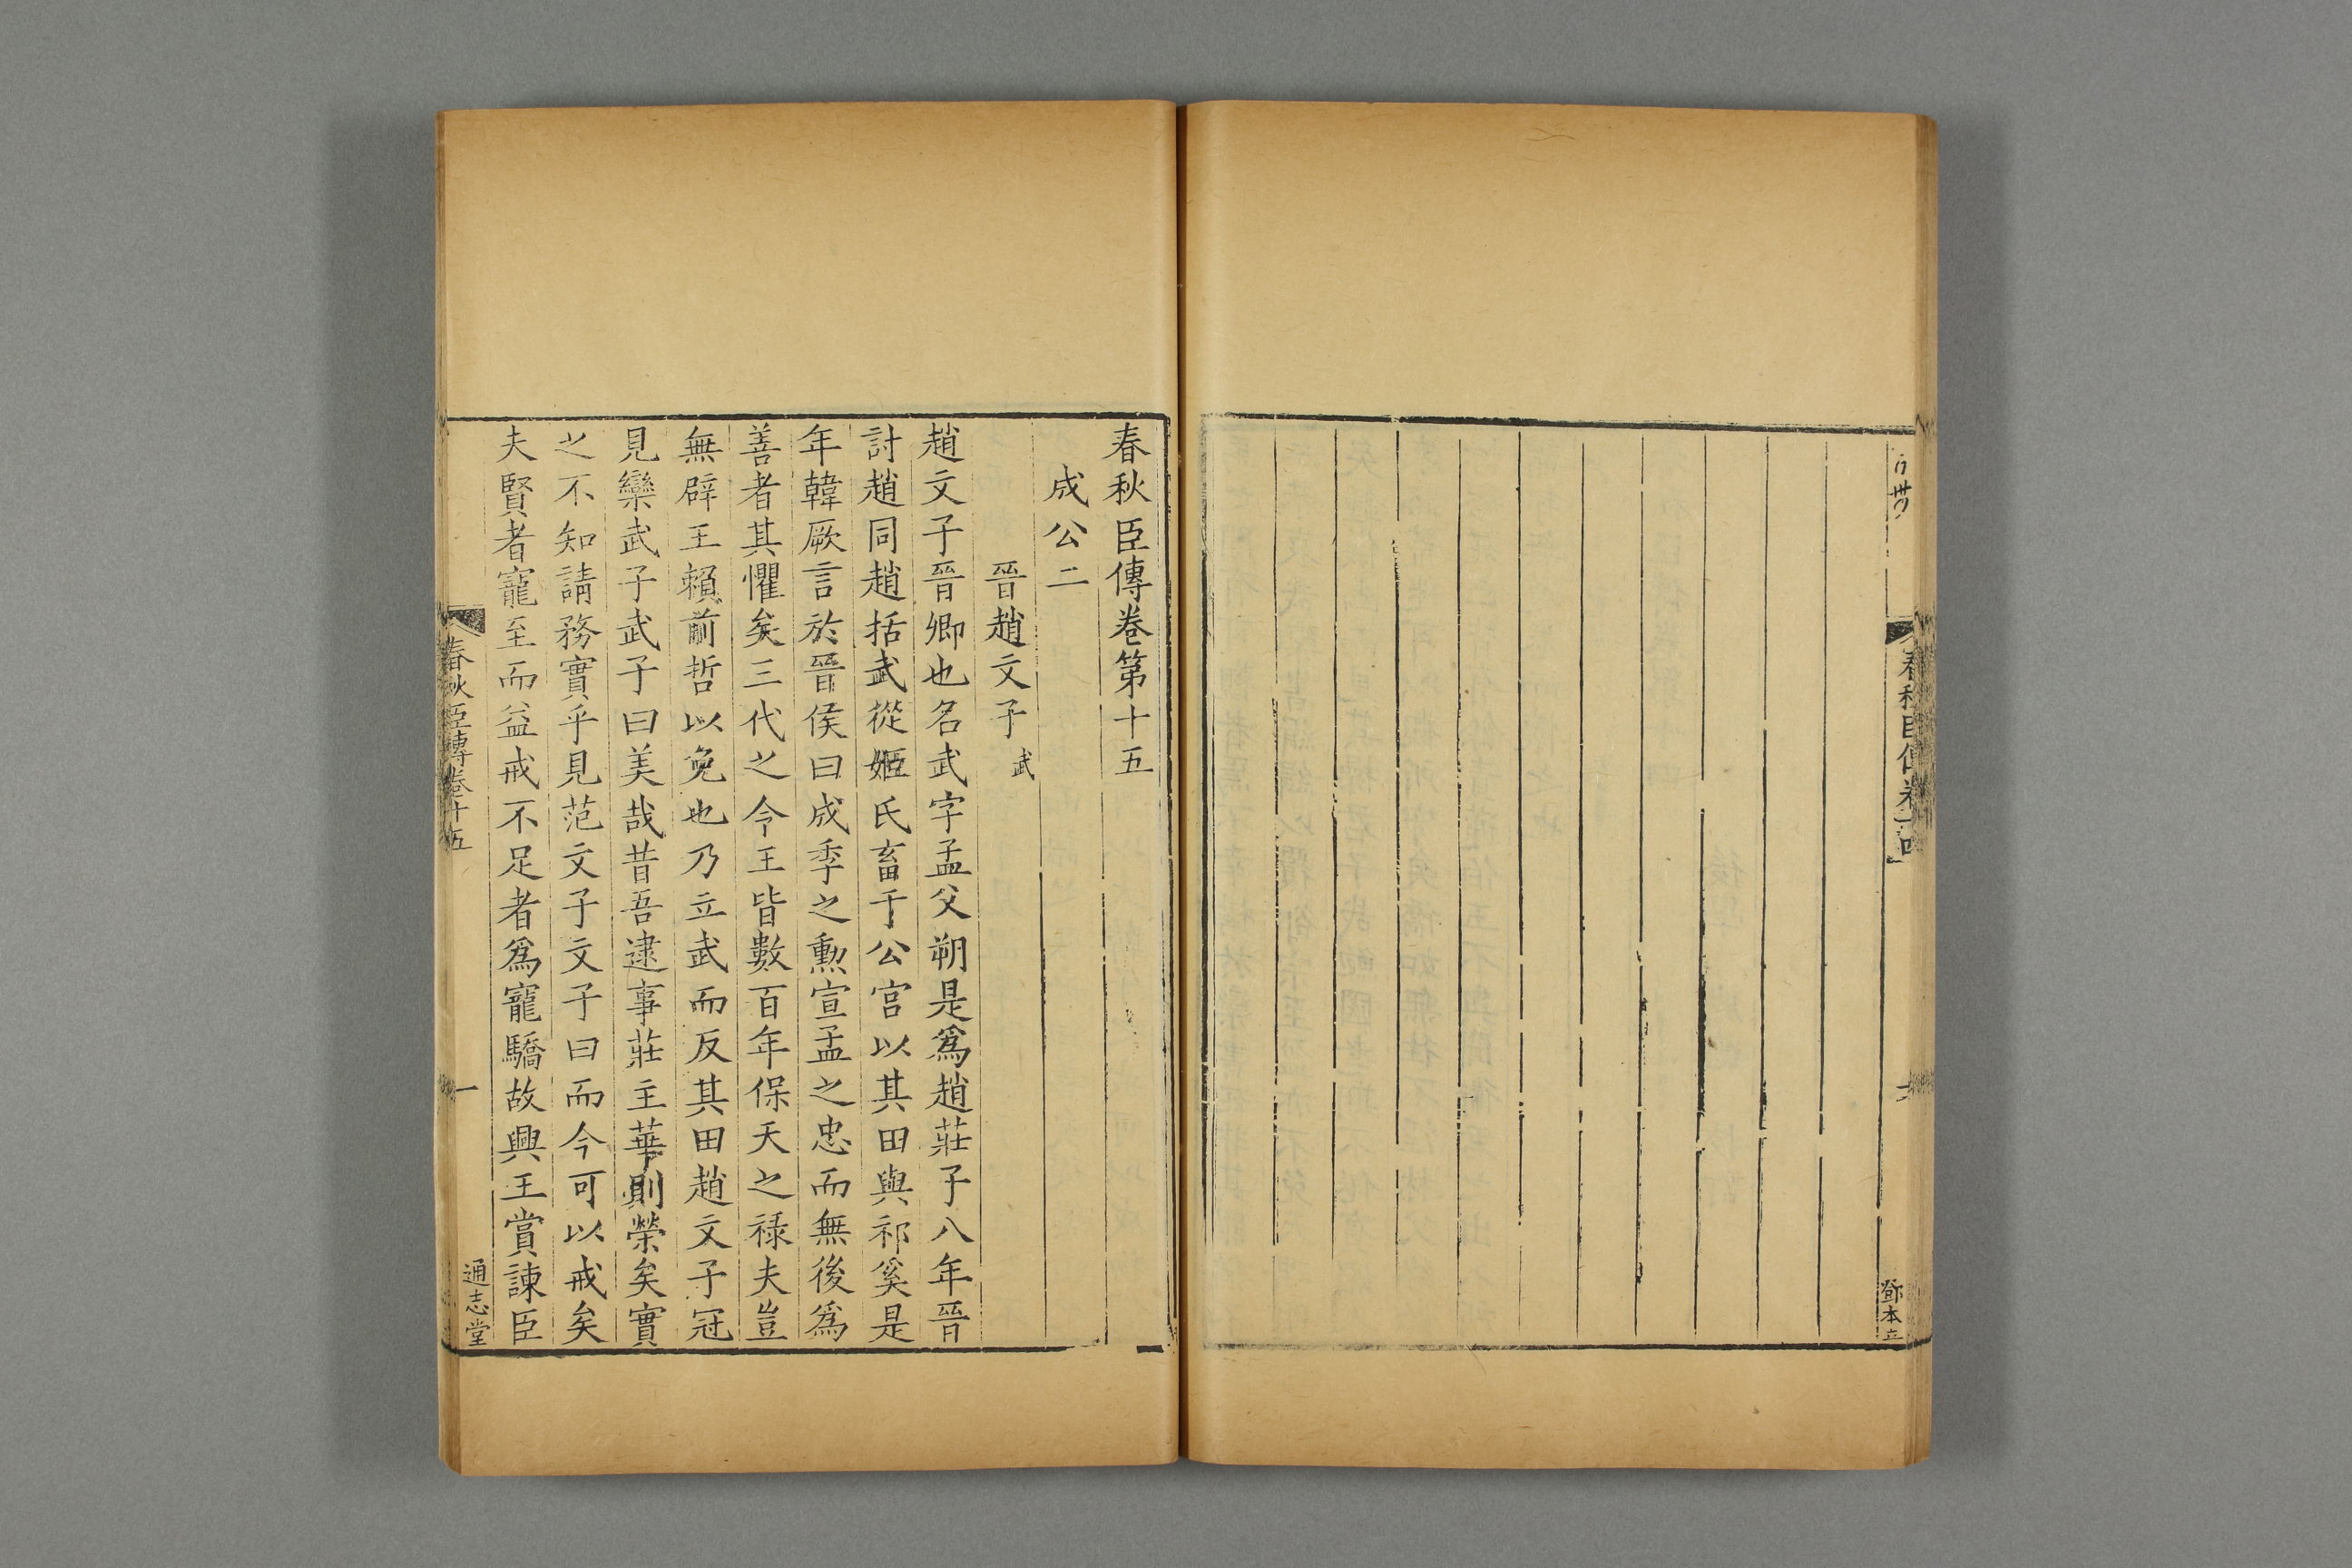 春秋臣傳卷十四
鄧本立
春秋臣傳卷第十五
成公二
晉趙文子武
趙文子晉卿也名武字孟父朔是爲趙莊子八年晉
討趙同趙括武從姬氏畜于公宮以其田與祁奚是
年韓厥言於晉侯曰成季之勳宣孟之忠而無後爲
善者其懼矣三代之令王皆數百年保天之祿夫豈
無辟王賴前哲以免也乃立武而反其田趙文子冠
見欒武子武子曰美哉昔吾逮事莊主華則榮矣實
之不知請務實乎見范文子文子曰而今可以戒矣
夫賢者寵至而益戒不足者爲寵驕故興王賞諫臣
春秋臣傳卷十五
一
通志堂